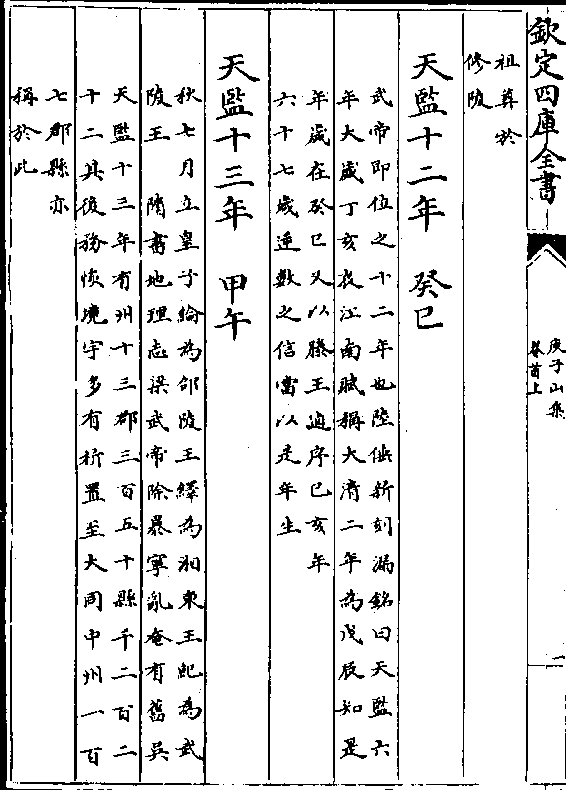 欽定四庫全書
庾子山集
卷首上
祖葬於
修陵
天監十二年 癸巳
武帝即位之十二年也陸倕新刻漏銘曰天監六
年大歲丁亥哀江南賦稱大清二年為戊辰知是
年歲在癸巳又以滕王逌序己亥年
六十七歲逆數之信當以是年生
天監十三年 甲午
秋七月立皇子綸為邵陵王繹為湘東王紀為武
陵王 隋書地理志梁武帝除暴寧亂奄有舊吳
天監十三年有州十三郡三百五十縣千二百二
十二其後務恢境宇多有析置至大同中州一百
七郡縣亦
稱於此